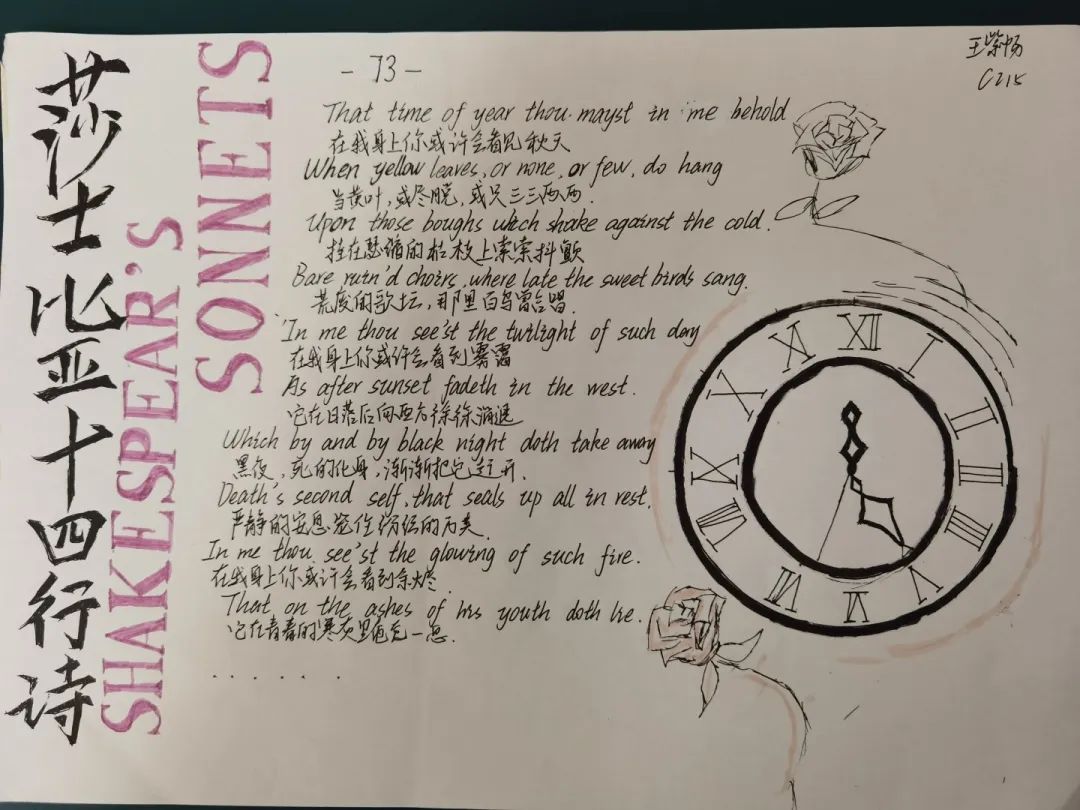 莎士比亚十四行诗
SHAKESPEAR'S
SONNETS
- 73 -
王紫畅
C215
That time of year thou mayst in me behold
在我身上你或许会看见秋天
When yellow leaves, or none, or few, do hang
当黄叶,或尽脱,或只三三两两
Upon those boughs which shake against the cold.
挂在瑟缩的枯枝上索索抖颤
Bare ruin'd choirs, where late the sweet birds sang.
荒废的歌坛,那里百鸟曾合唱.
In me thou see'st the twilight of such day
在我身上你或许会看到暮霭
As after sunset fadeth in the west.
它在日落后向西方徐徐消退
Which by and by black night doth take away
黑夜,死的化身,渐渐把它赶开.
Death's second self, that seals up all in rest.
严静的安息笼住纷纭的万类.
In me thou see'st the glowing of such fire.
在我身上你或许会看到余烬.
That on the ashes of his youth doth lie.
它在青春的寒灰里奄奄一息.
. . . . . .
XII
I
II
III
IIII
V
VI
VII
VIII
IX
X
XI